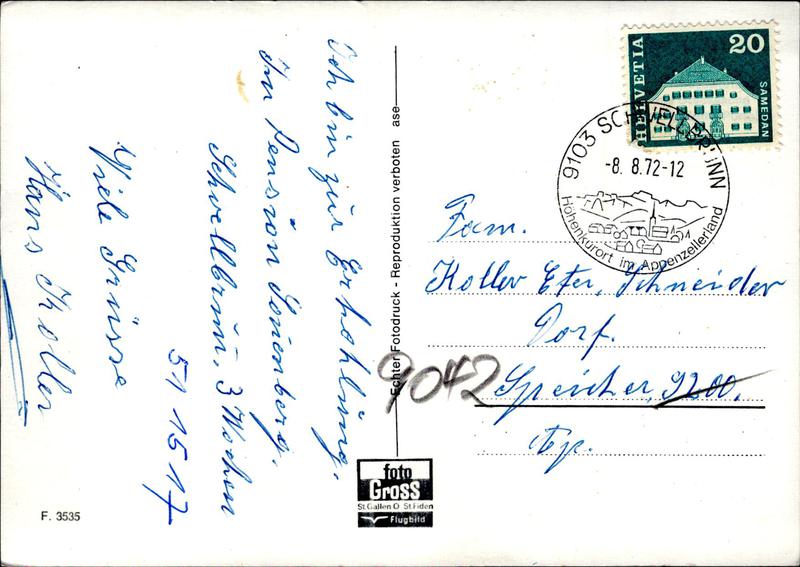 Ich bin zur Erhohlung.
In Pension Sonenberg.
Schwellbrun. 3 Wochen
51 15 17
Viele Grüsse
Hans Koller
F. 3535
Echter Fotodruck - Reproduktion verboten ase
foto
Gross
St. Gallen O St. Fiden
Flugbild
HELVETIA
20
SAMEDAN
9103 SCHWELLBRUNN
-8. 8.72-12
Höhenkurort im Appenzellerland
Fam.
Koller Efer, Schneider
Dorf.
9042 Speicher, 9200.
Ap.